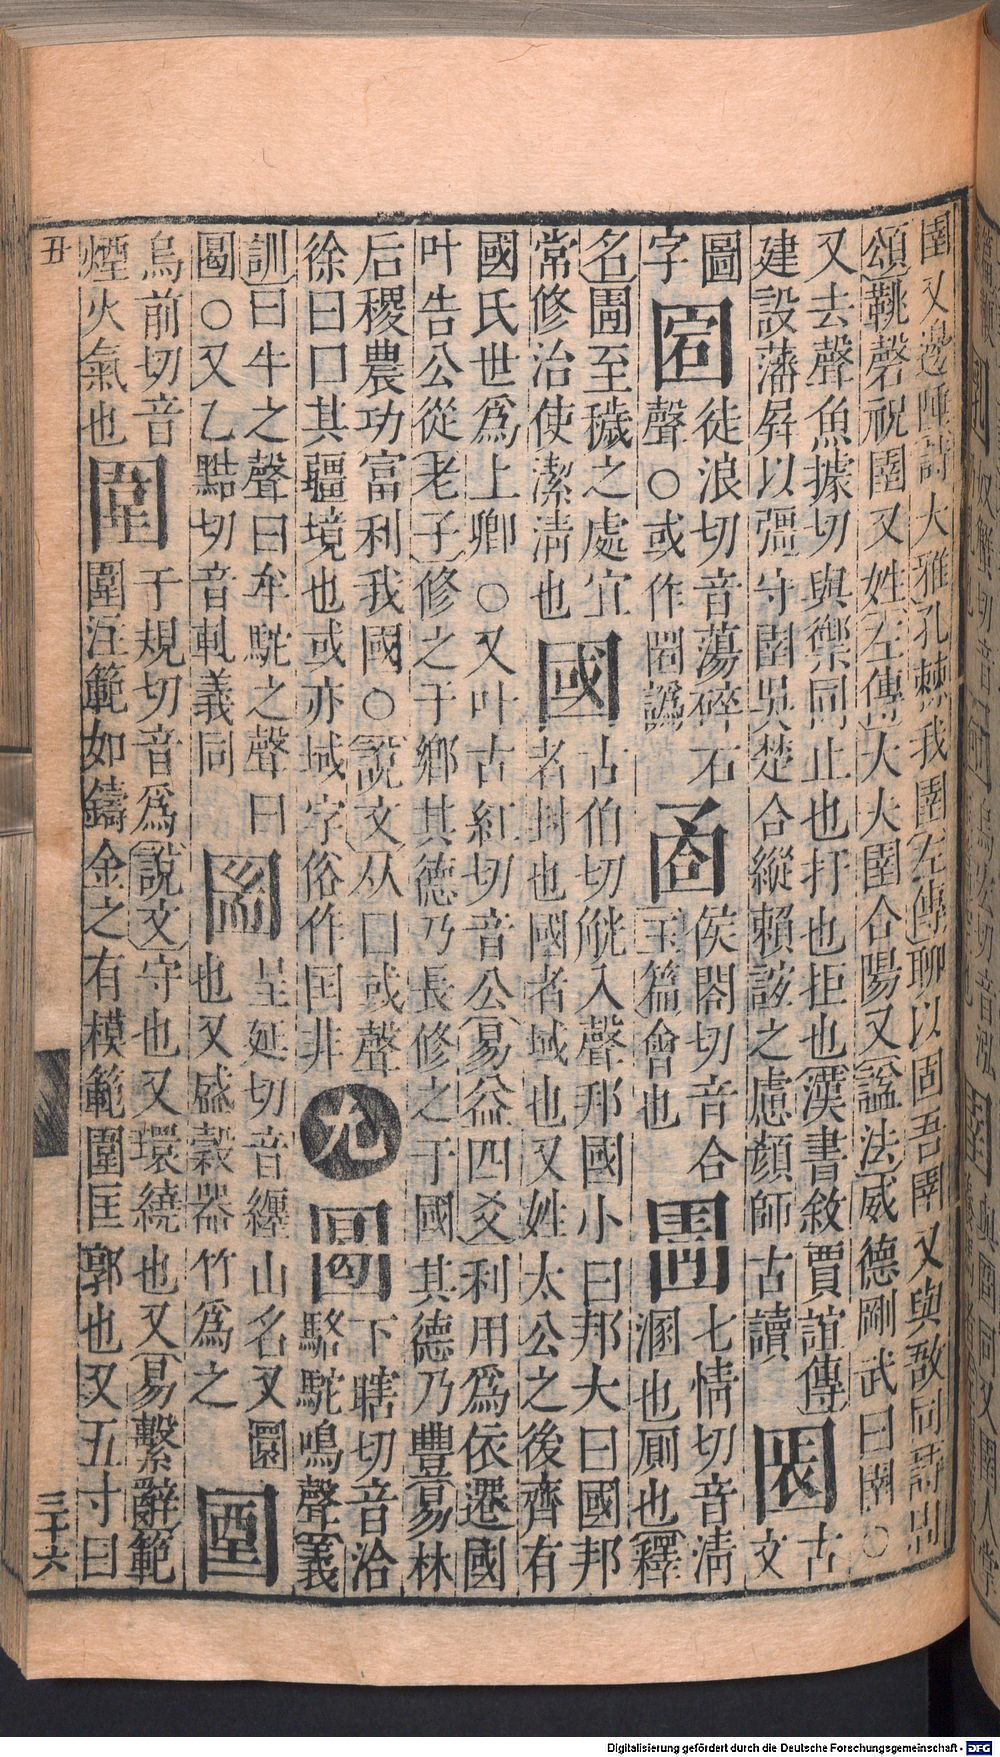 圉又邊陲詩大雅孔棘我圉左傳聊以固吾圉又與敔同詩周
頌鞉磬祝圉又姓左傳大夫圉合陽又諡法威德剛武曰圉○
又去聲魚據切與禦同止也打也拒也漢書敘賈誼傳
建設藩屛以彊守圉吳楚合縱賴誼之慮顏師古讀
古
文
圖
字
徒浪切音蕩碎石
聲○或作譌
侯閤切音合
玉篇會也
圊
七情切音清
溷也厠也釋
名圊至穢之處宜
常修治使潔淸也
國
古伯切觥入聲邦國小曰邦大曰國邦
者封也國者域也又姓太公之後齊有
國氏世爲上卿○又叶古紅切音公易益四爻利用爲依遷國
叶告公從老子修之于鄉其德乃長修之于國其德乃豐易林
后稷農功富利我國○說文从囗或聲
徐曰囗其疆境也或亦域字俗作囯非
九
下瞎切音洽
駱駝鳴聲義
訓曰牛之聲曰牟駝之聲曰
○又乙黠切音軋義同
呈延切音纏山名又
也又盛穀器竹爲之
烏前切音
煙火氣也
圍
于規切音爲說文守也又環繞也又易繫辭範
圍注範如鑄金之有模範圍匡郭也又五寸曰
丑
三十六
Digitalisierung gefördert durch die Deutsche Forschungsgemeinschaft - DFG